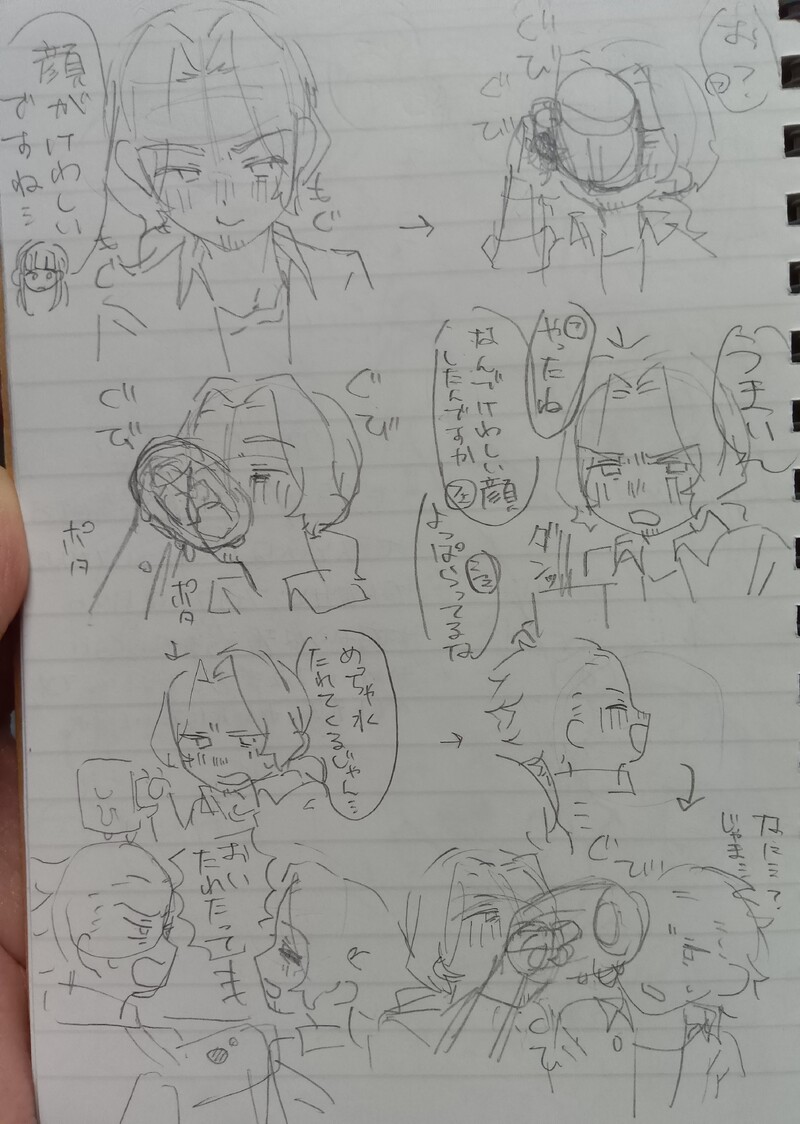 顔がけわしい
ですね…
もぐ
もぐ
お?
ぐび
ぐび
うまいん
ダンッ
やったね
なんでけわしい顔
したんですか
よっぱらってるな
ぐび
ぐび
ポタ
ポタ
めっちゃ水
たれてくるじゃん…
なに…?
じゃま…
ぐび
おい
たれたってま